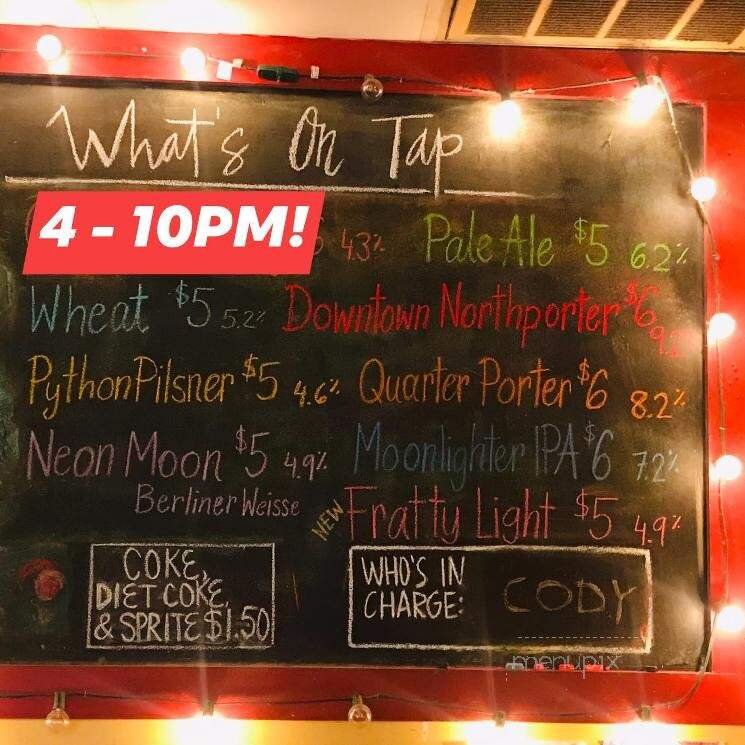 What's On Tap
4 - 10PM!
4.3%
Pale Ale $5 6.2%
Wheat $5 5.2%
Downtown Northporter $6
Python Pilsner $5 4.6%
Quarter Porter $6 8.2%
Neon Moon $5 4.9%
Berliner Weisse
Moonlighter IPA $6 7.2%
NEW Fratty Light $5 4.9%
COKE,
DIET COKE,
& SPRITE $1.50
WHO'S IN
CHARGE:
CODY
menupix